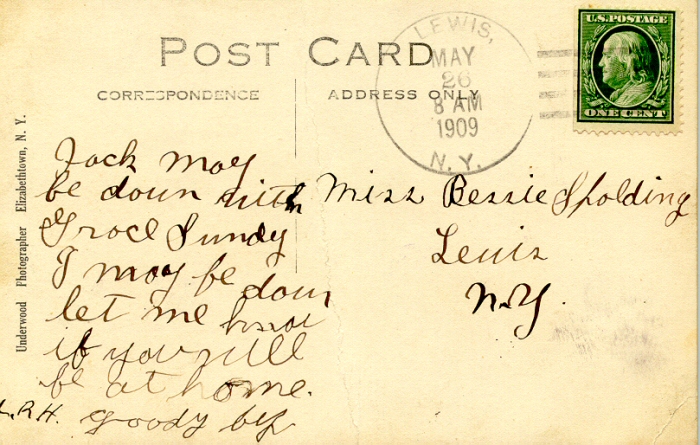 POST CARD
CORRESPONDENCE
ADDRESS ONLY
LEWIS,
MAY
26
8 AM
1909
N. Y.
U.S. POSTAGE
ONE CENT
Underwood Photographer Elizabethtown, N. Y.
Jack may
be down with
Grace Sundy
I may be down
let me know
if you will
be at home.
L.R.H. goody by
Miss Bessie Spolding
Lewis
N.Y.